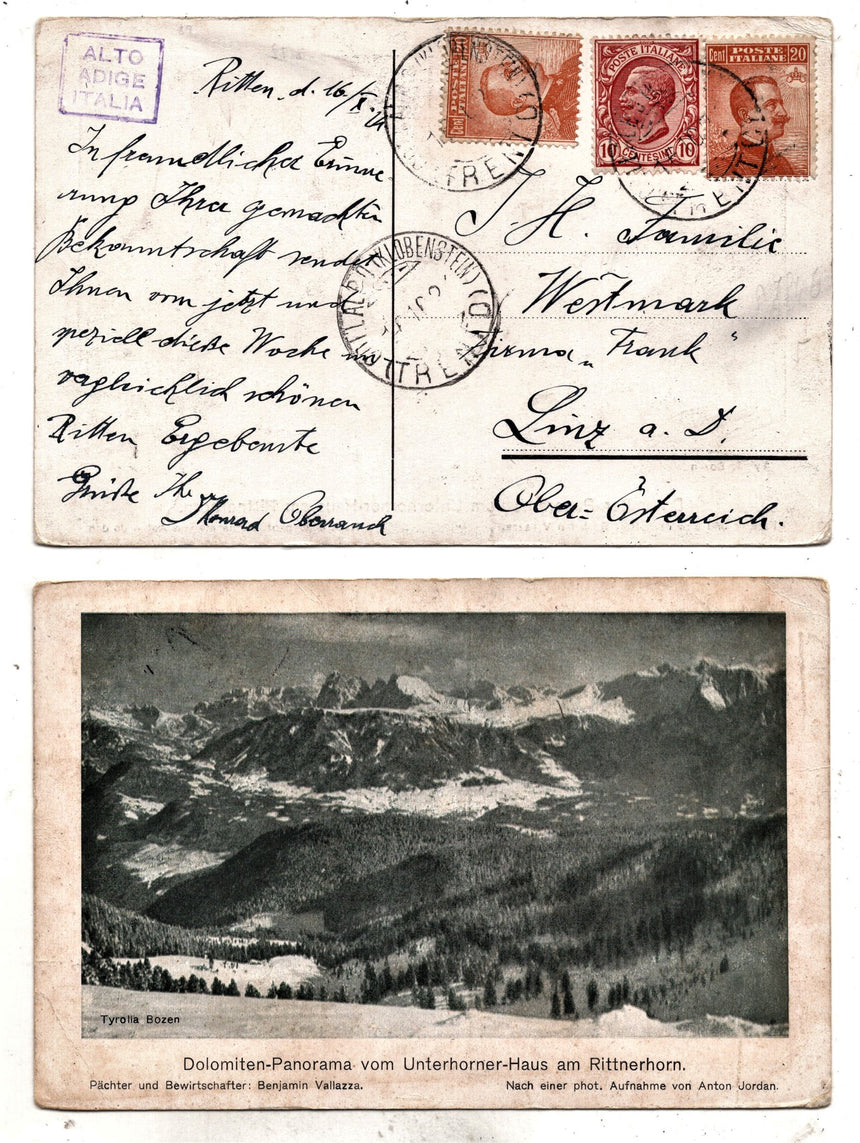 ALTO
ADIGE
ITALIA
Ritten, d. 16/X.
In freundlicher Erinne-
rung Ihrer gemachten
Bekanntschaft sendet
Ihnen vom jetzt und
speziell diese Woche
schönen
Ritten Ergebenste
Grüße Ihr
Konrad Oberrauch
Cent
POSTE ITALIANE
POSTE ITALIANE
10 CENTESIMI 10
Cent POSTE ITALIANE 20
(KLOBENSTEIN)
(TRENTO)
I. H. Familie
Westmark
Firma „Frank“
Linz a. D.
Ober-Österreich.
Tyrolia Bozen
Dolomiten-Panorama vom Unterhorner-Haus am Rittnerhorn.
Pächter und Bewirtschafter: Benjamin Vallazza.
Nach einer phot. Aufnahme von Anton Jordan.